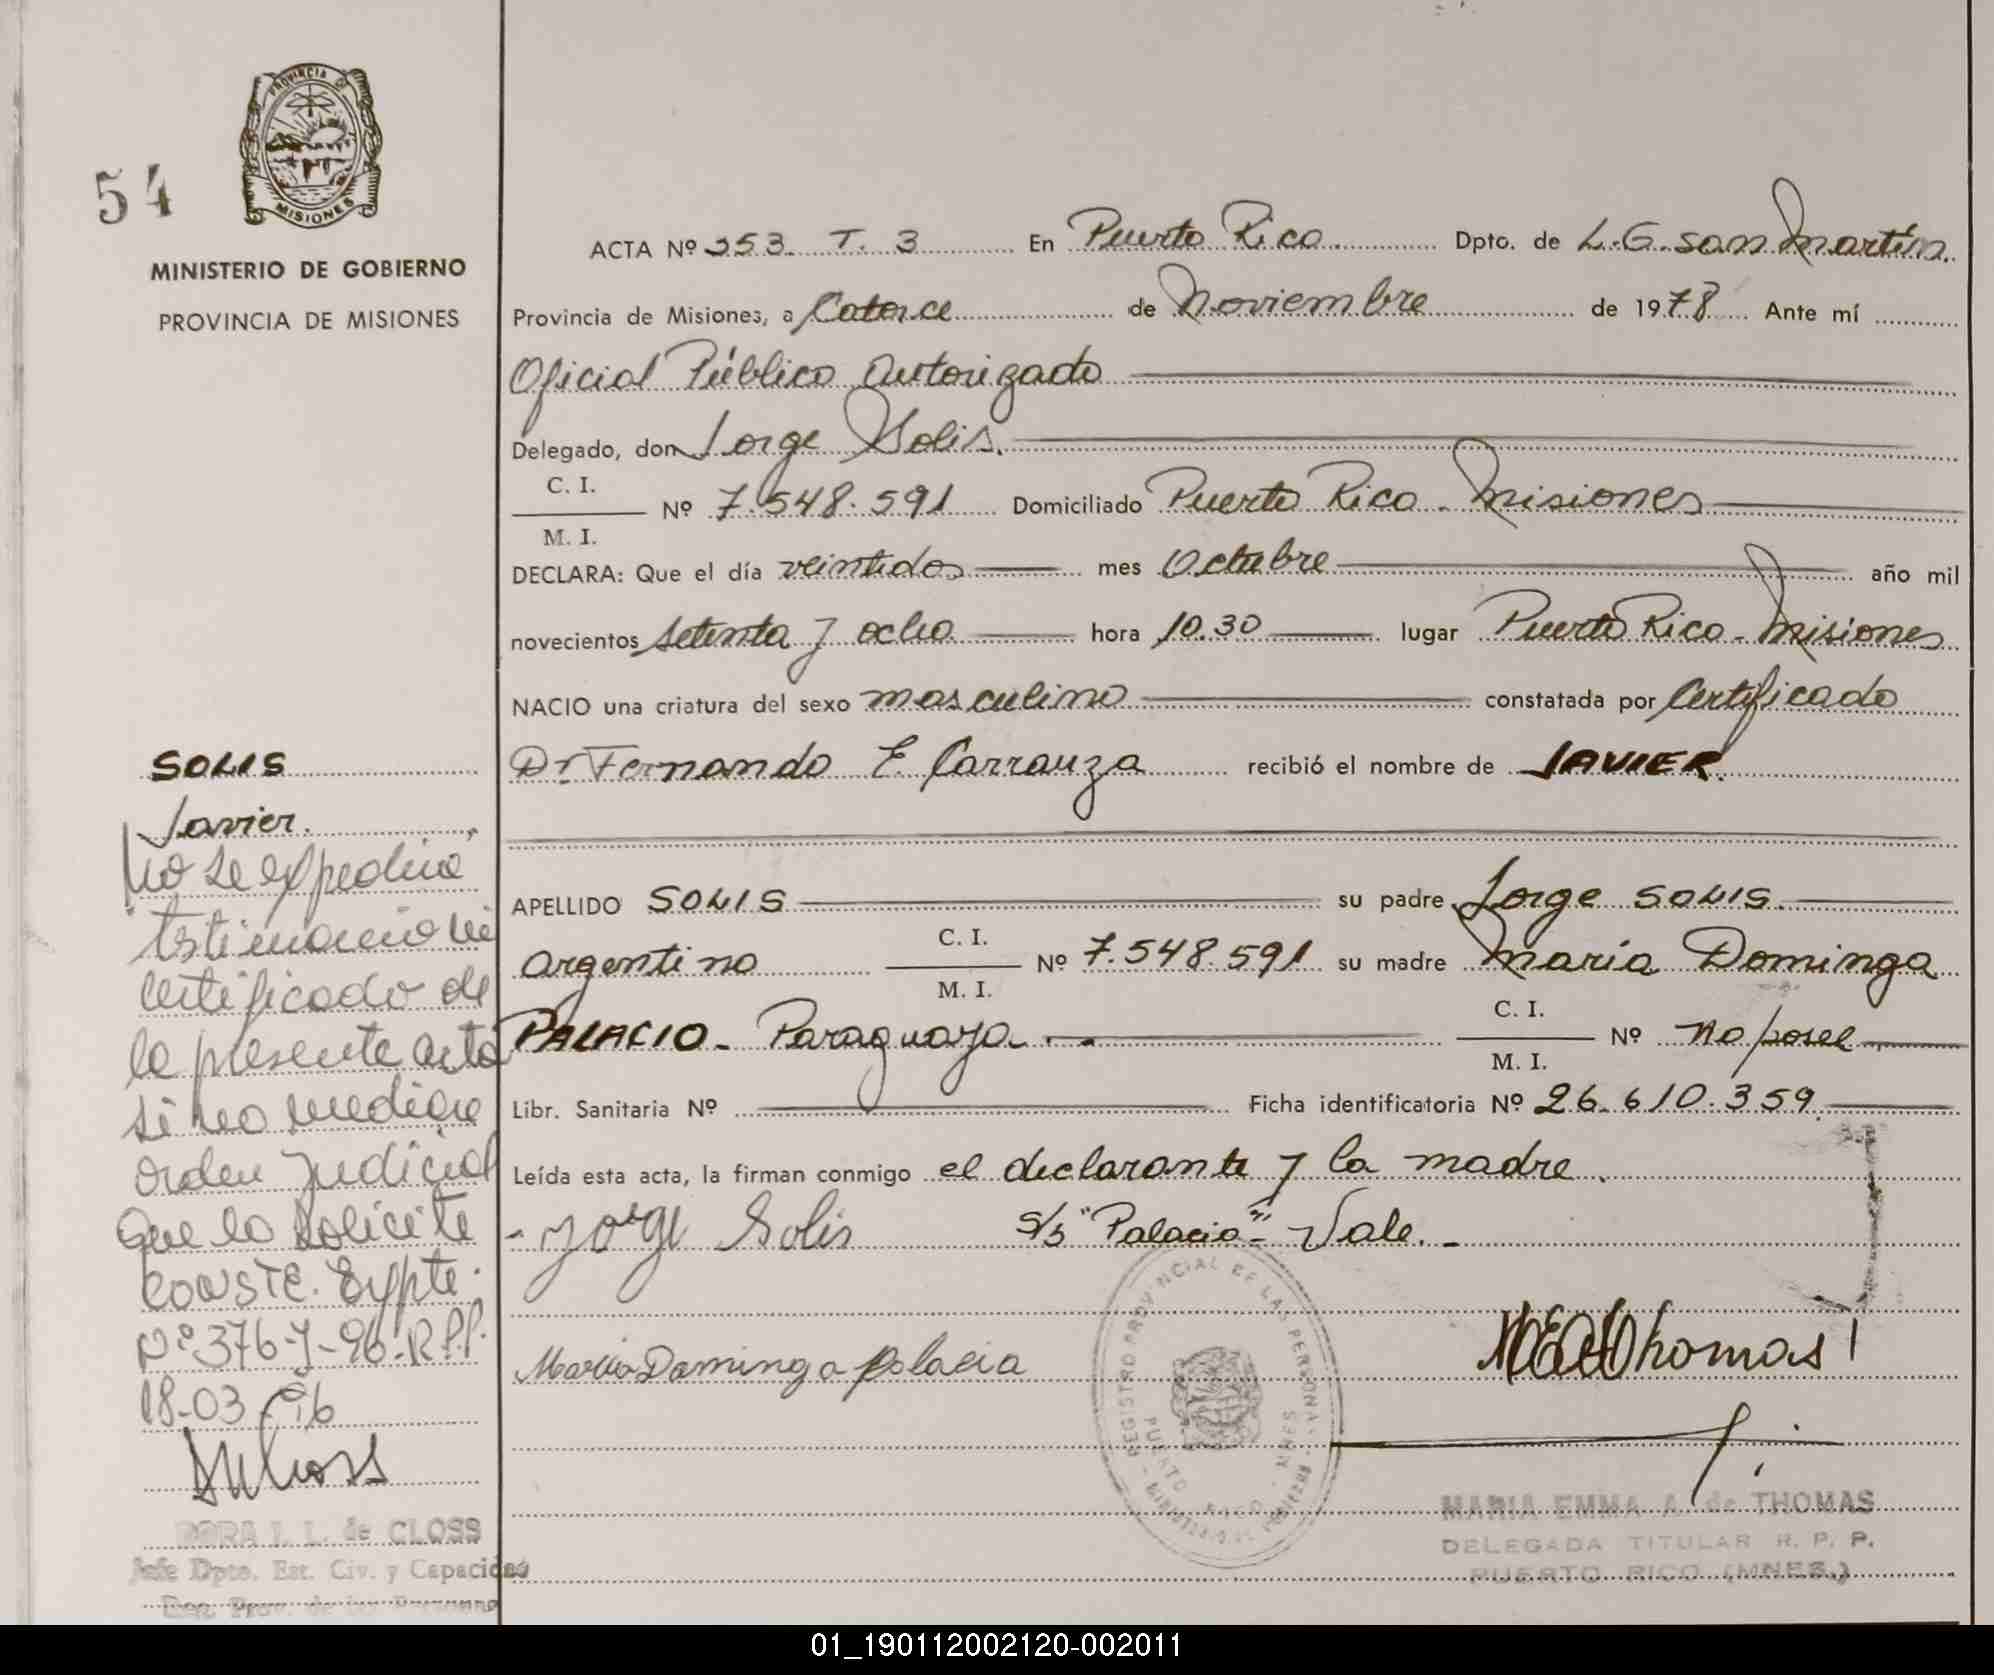 54
PROVINCIA DE
MISIONES
MINISTERIO DE GOBIERNO
PROVINCIA DE MISIONES
ACTA Nº 353. T. 3 En Puerto Rico Dpto. de L.G. San Martín.
Provincia de Misiones, a Catorce de Noviembre de 1978 Ante mí
Oficial Público autorizado
Delegado, don Jorge Solis.
C. I.
M. I.
Nº 7.548.591 Domiciliado Puerto Rico - Misiones
DECLARA: Que el día veintidos mes Octubre año mil
novecientos setenta y ocho hora 10.30 lugar Puerto Rico - Misiones
NACIO una criatura del sexo masculino constatada por Certificado
Dr Fernando E. Carranza recibió el nombre de JAVIER.
APELLIDO SOLIS su padre Jorge SOLIS.
argentino C. I. M. I. Nº 7.548.591 su madre María Dominga
PALACIO - Paraguaya C. I. M. I. Nº no posee
Libr. Sanitaria Nº Ficha identificatoria Nº 26.610.359
Leída esta acta, la firman conmigo el declarante y la madre.
Jorge Solis S/s "Palacio" - Vale. -
Maria Dominga Palacia
Thomas
REGISTRO PROVINCIAL DE LAS PERSONAS
PUERTO RICO - MNES
MARIA EMMA A. de THOMAS
DELEGADA TITULAR R. P. P.
PUERTO RICO (MNES.)
SOLIS
Javier.
No se expedira
testimonio ni
certificado de
la presente acta
si no mediare
orden judicial
que lo solicite
CONSTE. Expte.
Nº 376-J-96-R.P.P.
18-03-96
DORA I. L. de CLOSS
Jefe Dpto. Est. Civ. y Capacidad
Reg. Prov. de las Personas
01_190112002120-002011